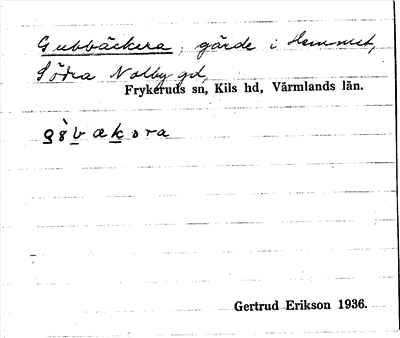 Gubbäckra, gärde i Hemmet,
Södra Nolby gd,
Frykeruds sn, Kils hd, Värmlands län.
Gertrud Erikson 1936.